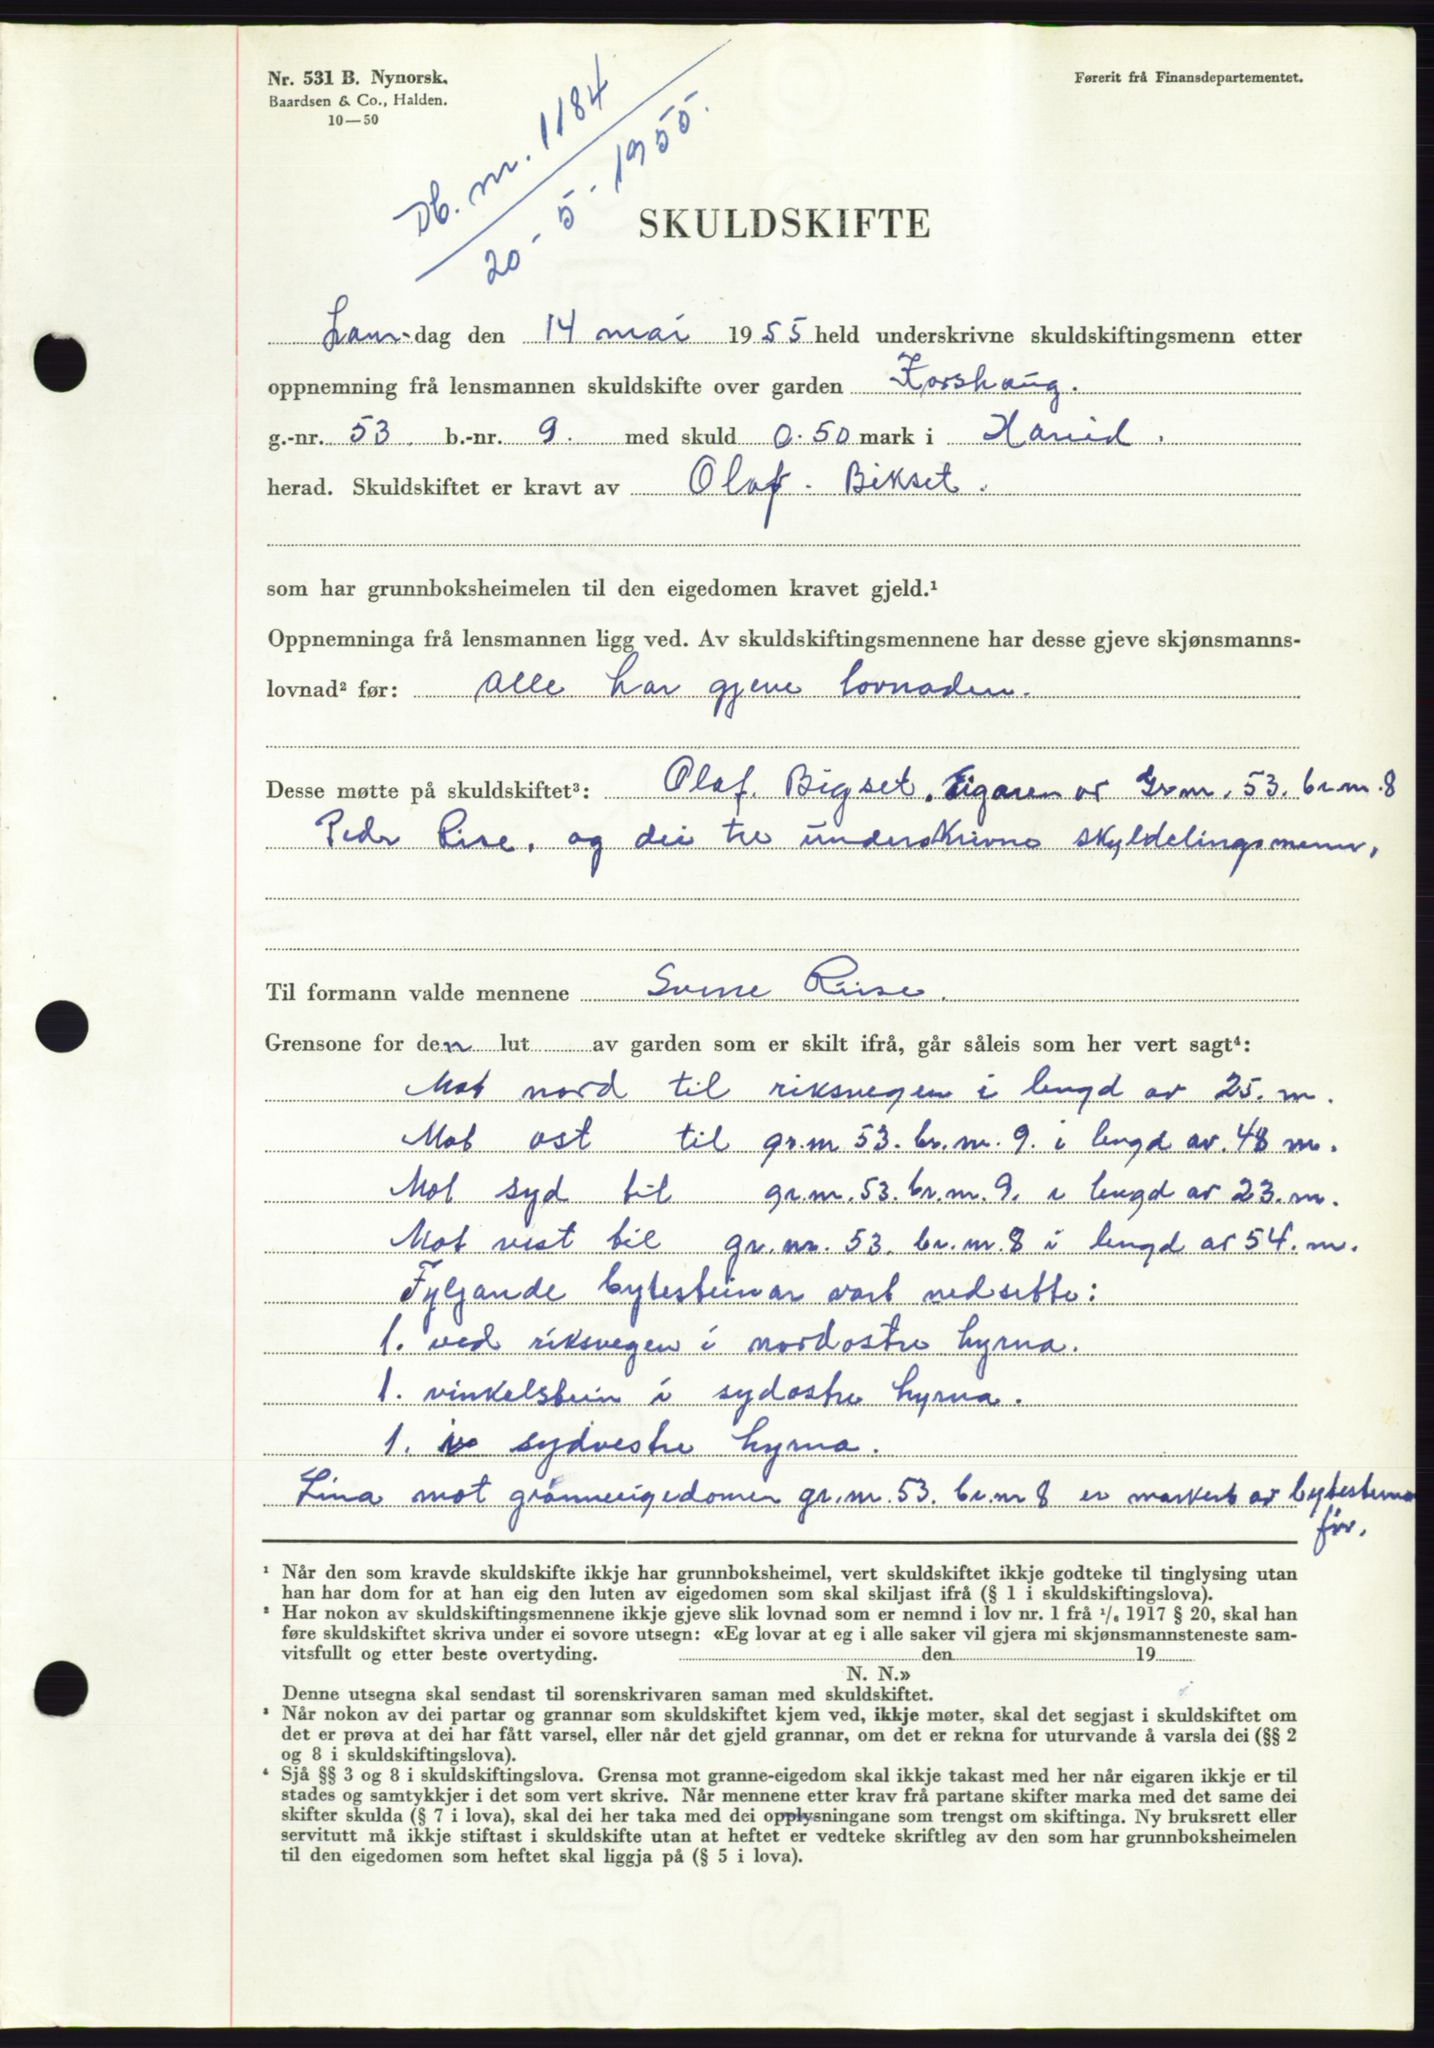 Nr. 531 B. Nynorsk.
Baardsen & Co., Halden.
10—50
Førerit frå Finansdepartementet.
Db. nr. 1184
20-5-1955.
SKULDSKIFTE
Laur-dag den 14 mai 1955 held underskrivne skuldskiftingsmenn etter
oppnemning frå lensmannen skuldskifte over garden Korshaug.
g.-nr. 53. b.-nr. 9. med skuld 0.50 mark i Hareid.
herad. Skuldskiftet er kravt av Olaf. Bikset.
som har grunnboksheimelen til den eigedomen kravet gjeld.¹
Oppnemninga frå lensmannen ligg ved. Av skuldskiftingsmennene har desse gjeve skjønsmanns-
lovnad² før: alle har gjeve lovnaden.
Desse møtte på skuldskiftet³: Olaf. Bigset. Eigaren av Gr.nr. 53. br.nr. 8
Peder Rise. og dei tre underskrivne skyldelingsmenn.
Til formann valde mennene Sverre Riise.
Grensone for den lut av garden som er skilt ifrå, går såleis som her vert sagt⁴:
Mot nord til riksvegen i lengd av 25. m.
Mot ost til gr.nr 53. br.nr. 9. i lengd av. 48 m.
Mot syd til gr.nr. 53. br.nr. 9. i lengd av 23. m.
Mot vest til gr.nr. 53. br.nr. 8 i lengd av 54. m.
Fylgande bytesteinar vart nedsette:
1. ved riksvegen i nordostre hyrna.
1. vinkelstein i sydostre hyrna.
1. i sydvestre hyrna.
Lina mot granneeigedomen gr.nr. 53. br.nr 8 er markert av bytesteinar
før.
¹ Når den som kravde skuldskifte ikkje har grunnboksheimel, vert skuldskiftet ikkje godteke til tinglysing utan
han har dom for at han eig den luten av eigedomen som skal skiljast ifrå (§ 1 i skuldskiftingslova).
² Har nokon av skuldskiftingsmennene ikkje gjeve slik lovnad som er nemnd i lov nr. 1 frå ¹/₆ 1917 § 20, skal han
føre skuldskiftet skriva under ei sovore utsegn: «Eg lovar at eg i alle saker vil gjera mi skjønsmannsteneste sam-
vitsfullt og etter beste overtyding. den 19
N. N.»
Denne utsegna skal sendast til sorenskrivaren saman med skuldskiftet.
³ Når nokon av dei partar og grannar som skuldskiftet kjem ved, ikkje møter, skal det segjast i skuldskiftet om
det er prøva at dei har fått varsel, eller når det gjeld grannar, om det er rekna for uturvande å varsla dei (§§ 2
og 8 i skuldskiftingslova).
⁴ Sjå §§ 3 og 8 i skuldskiftingslova. Grensa mot granne-eigedom skal ikkje takast med her når eigaren ikkje er til
stades og samtykkjer i det som vert skrive. Når mennene etter krav frå partane skifter marka med det same dei
skifter skulda (§ 7 i lova), skal dei her taka med dei opplysningane som trengst om skiftinga. Ny bruksrett eller
servitutt må ikkje stiftast i skuldskifte utan at heftet er vedteke skriftleg av den som har grunnboksheimelen
til den eigedomen som heftet skal liggja på (§ 5 i lova).